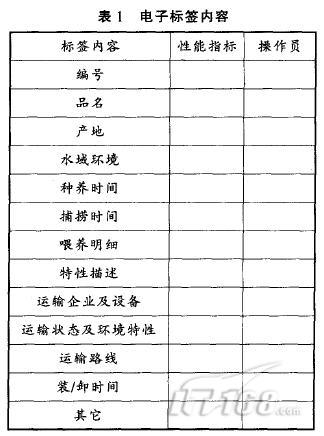 表1 电子标签内容
标签内容 性能指标 操作员
编号
品名
产地
水域环境
种养时间
捕捞时间
喂养明细
特性描述
运输企业及设备
运输状态及环境特性
运输路线
装/卸时间
其它